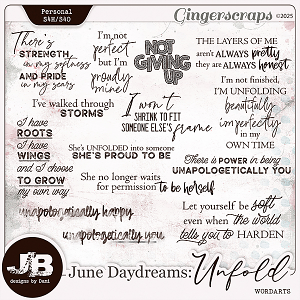 Personal
S4H/S4O
Gingerscraps ©2025
There's
STRENGTH
in my softness
AND PRIDE
in my scars
I'm not
perfect
but I'm
proudly
mine!
NOT
GIVING
UP
THE LAYERS OF ME
aren't ALWAYS pretty
they are ALWAYS honest
I'm not finished,
I'M UNFOLDING
beautifully
imperfectly
in my
OWN TIME
I've walked through
STORMS
I won't
SHRINK TO FIT
SOMEONE ELSE'S
frame
I have
ROOTS
I have
WINGS
and I choose
TO GROW
my own way
She's UNFOLDED into someone
SHE'S PROUD TO BE
There is POWER in being
UNAPOLOGETICALLY YOU
She no longer waits
for permission to be herself
Let yourself be soft
even when the world
tells you to HARDEN
unapologetically happy
unapologetically you
JB
designs by Dani
June Daydreams: Unfold
WORDARTS